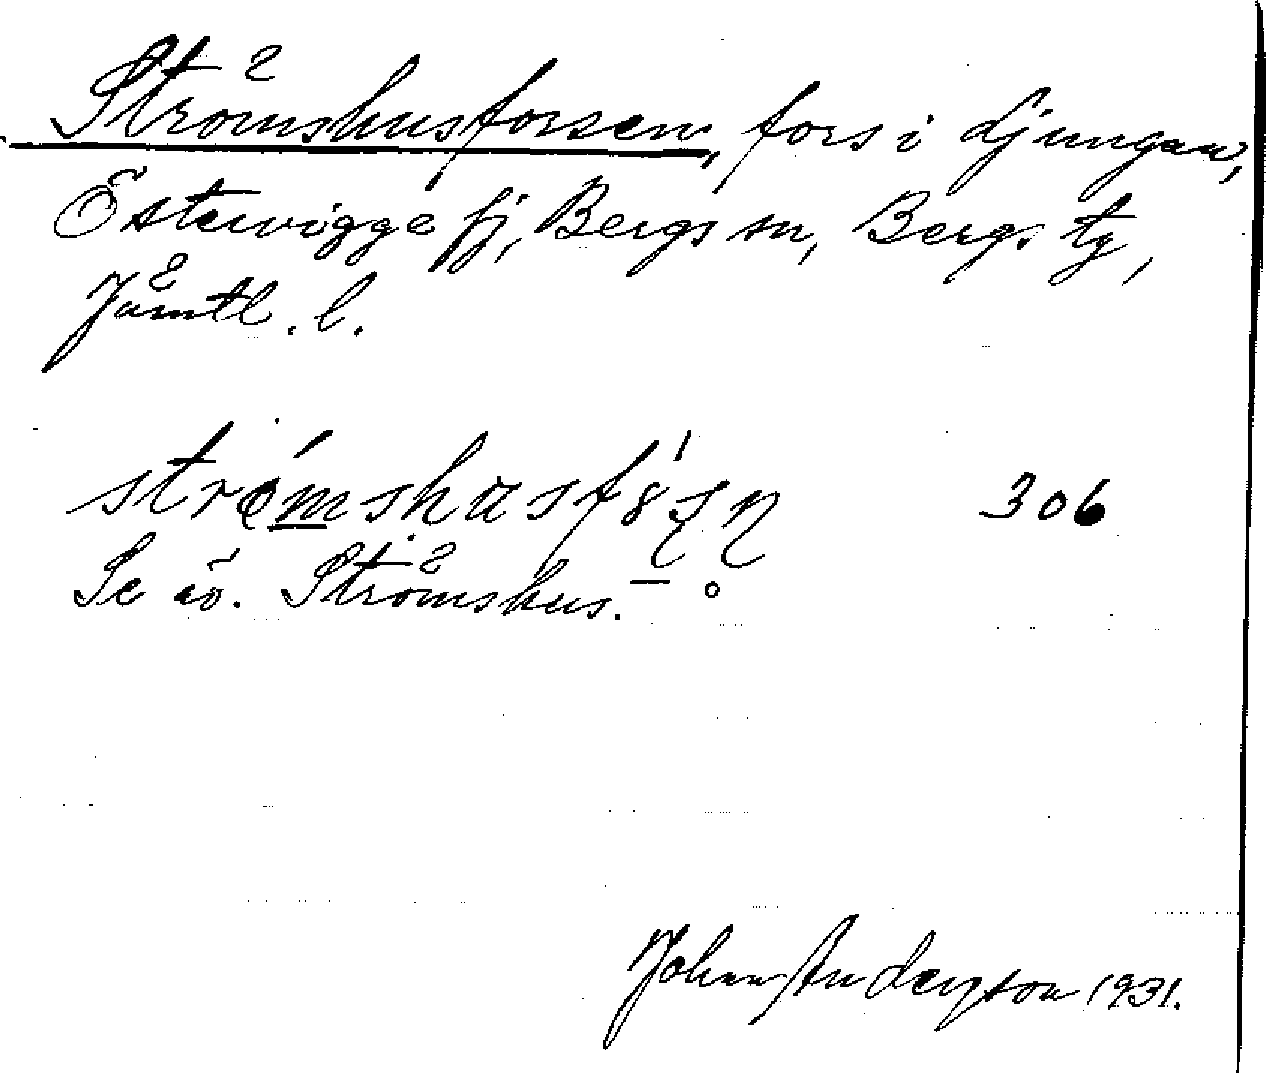 Strömshusforsen, fors i Ljungan,
Östervigge fj, Bergs sn, Bergs tg,
Jämtl. l.
306
Se äv. Strömshus.
Johan Anderzson 1931.